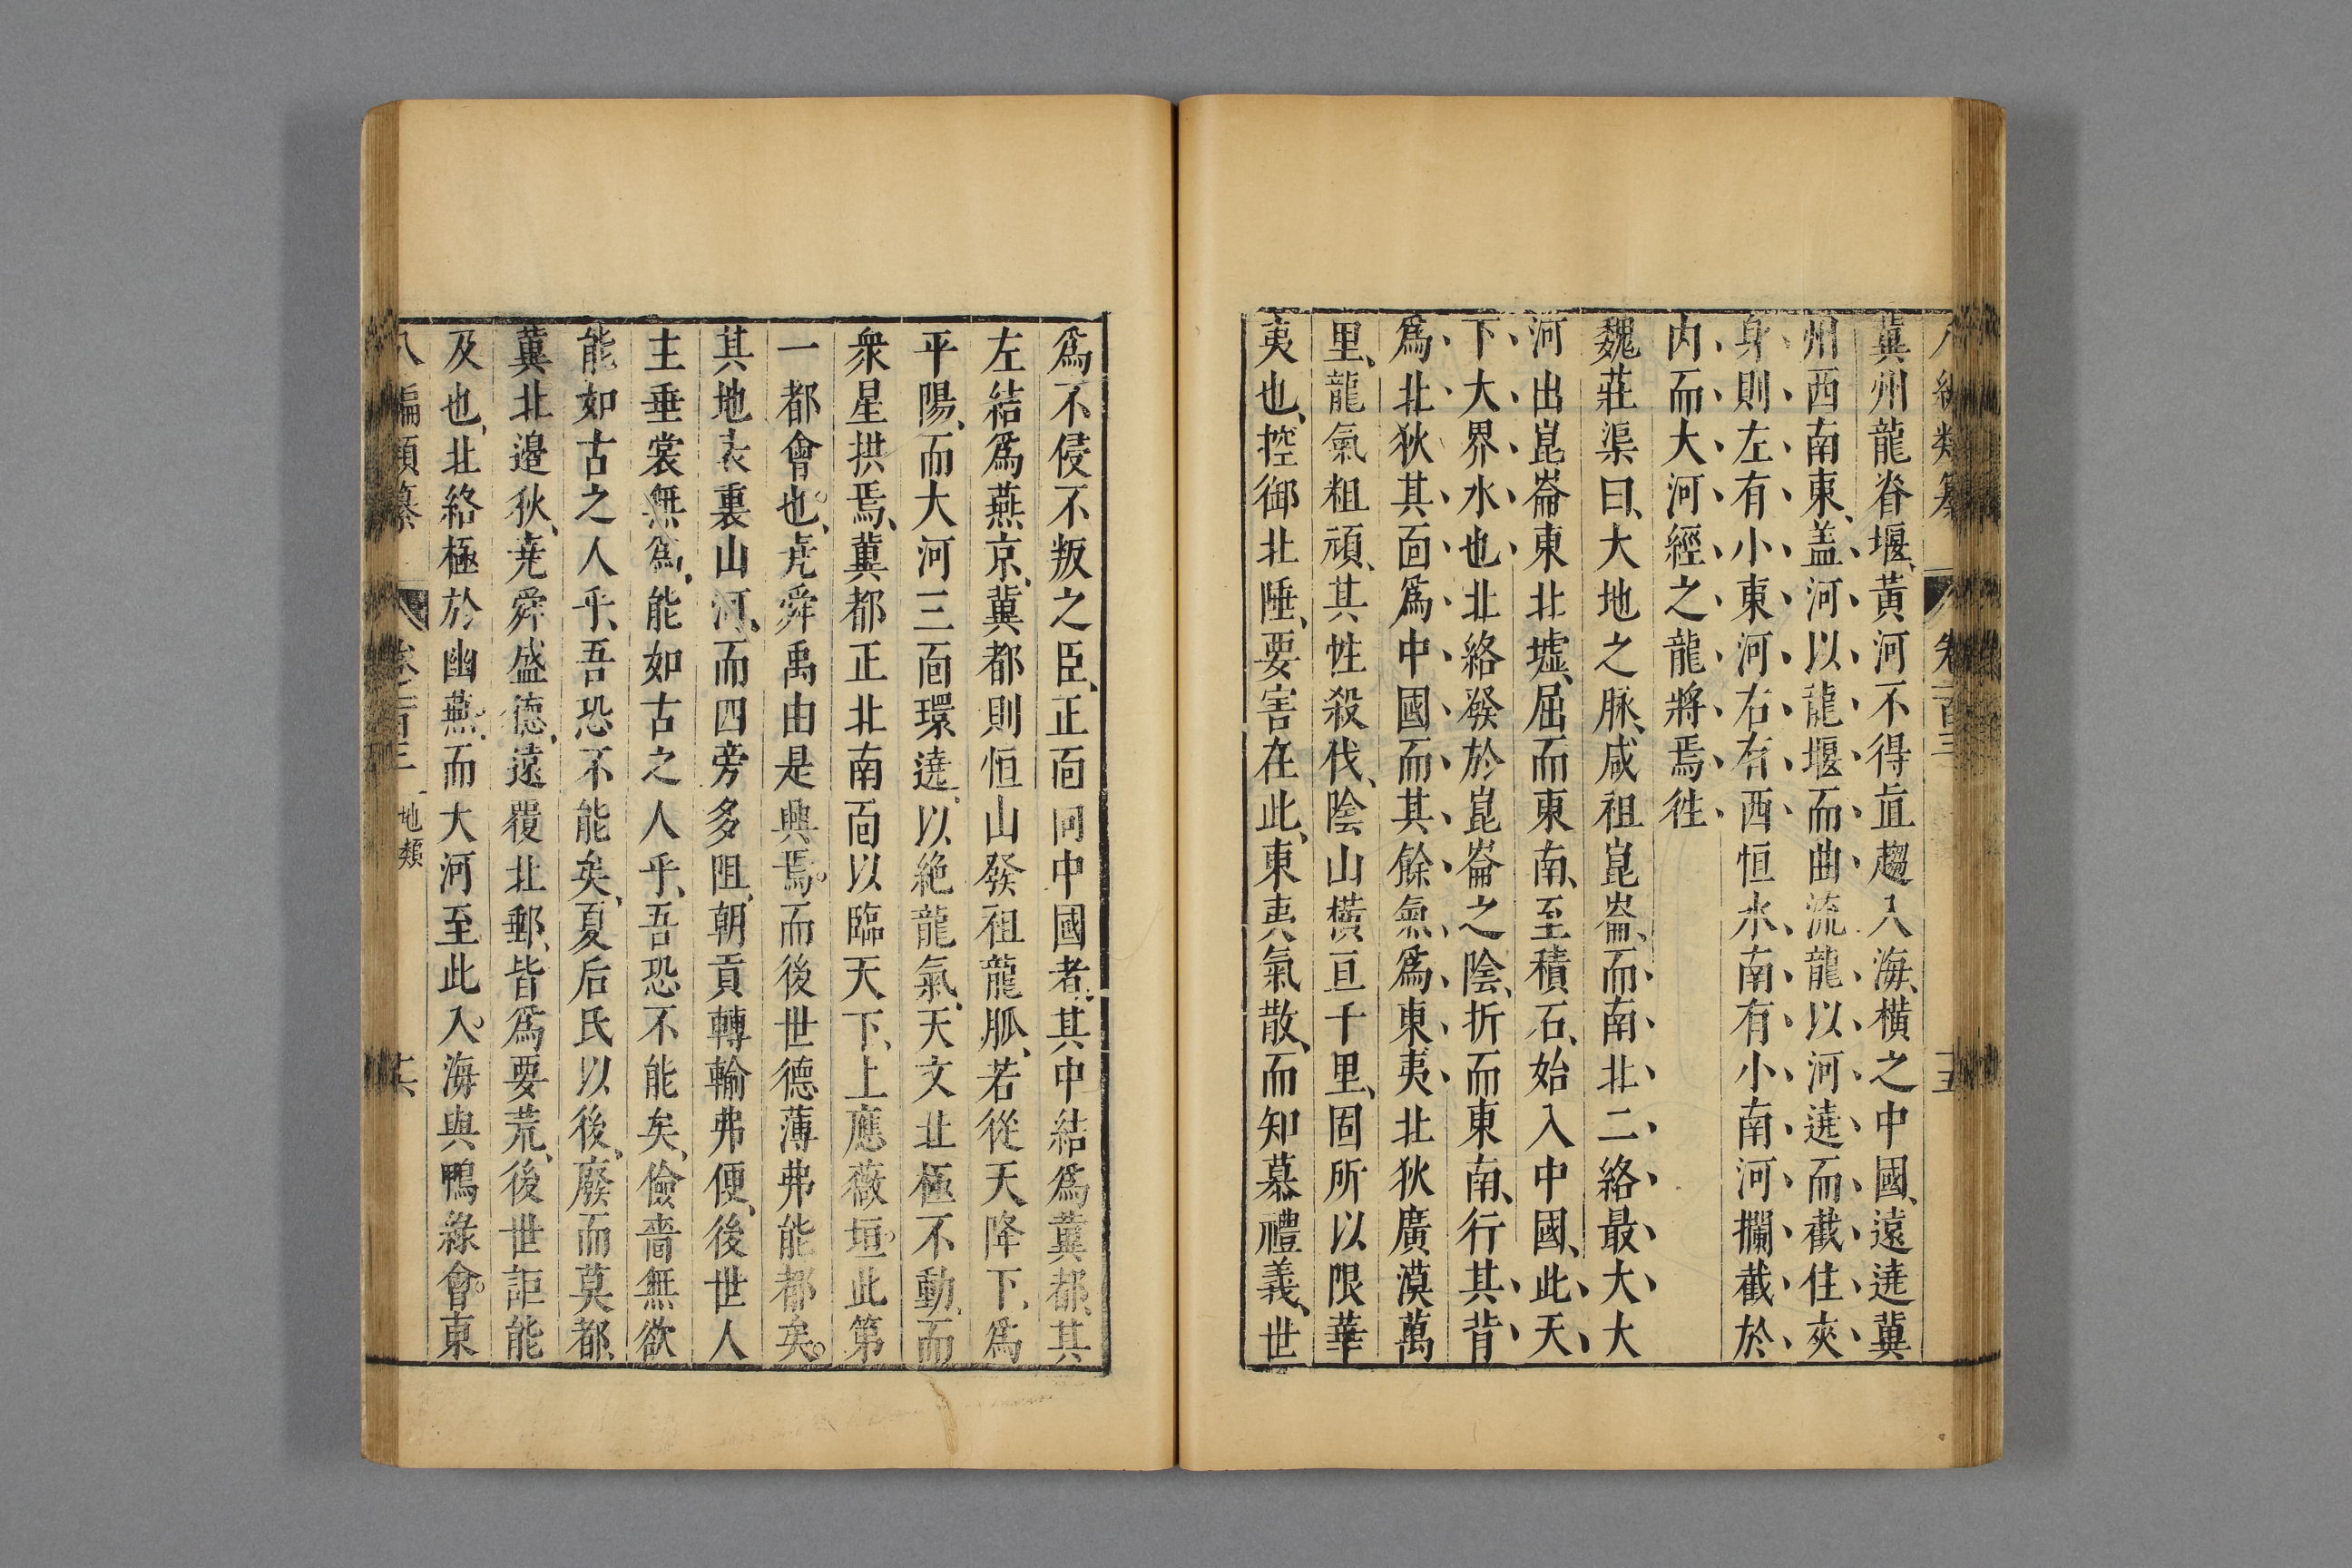 八編類纂 卷一百三 十五
冀州龍脊堰、黃河不得直趨入海、橫之中國、遠遶冀
州西南東、盖河以龍堰而曲流龍以河遶而截住夾
身則左有小東河右有西恒水南有小南河攔截於
内而大河經之龍將焉徃
魏莊渠曰、大地之脉、咸祖崑崙、而南北二絡最大大
河出崑崙東北墟、屈而東南、至積石、始入中國、此天
下大界水也北絡發於崑崙之陰、折而東南、行其背
爲北狄其面爲中國而其餘氣爲東夷北狄廣漠萬
里、龍氣粗頑、其性殺伐、陰山橫亘千里、固所以限華
夷也、控御北陲、要害在此、東夷氣散、而知慕禮義、世
爲不侵不叛之臣、正面同中國者、其中結爲冀都、其
左結爲燕京、冀都則恒山發祖龍脈、若從天降下、爲
平陽、而大河三面環遶、以絶龍氣、天文北極不動、而
衆星拱焉、冀都正北南面以臨天下、上應薇垣、此第
一都會也、尭舜禹由是興焉。而後世德薄弗能都矣。
其地表裏山河、而四旁多阻、朝貢轉輸弗便、後世人
主垂裳無爲、能如古之人乎、吾恐不能矣、儉嗇無欲
能如古之人乎、吾恐不能矣、夏后氏以後、廢而莫都、
冀北邊狄、尭舜盛德、遠覆北鄙、皆爲要荒、後世詎能
及也、北絡極於幽燕、而大河至此入海與鴨綠會。東
八編類纂 卷一百三 地類 十六